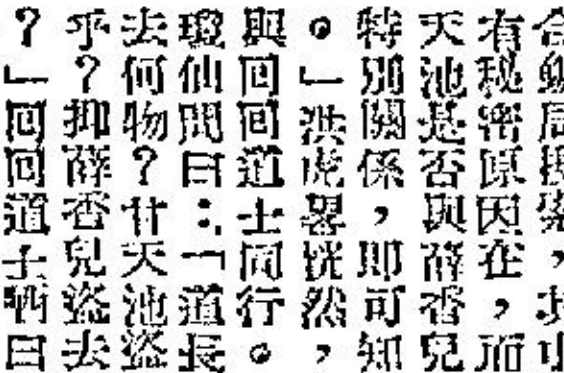 有秘密原因在，而
天池是否與薛杏兒
特別關係，即可知
。」洪虎畧恍然，
與回回道士同行。
瓊仙問曰：「道長
去何物？甘天池盜
乎？抑薛杏兒盜去
？」回回道士哂曰